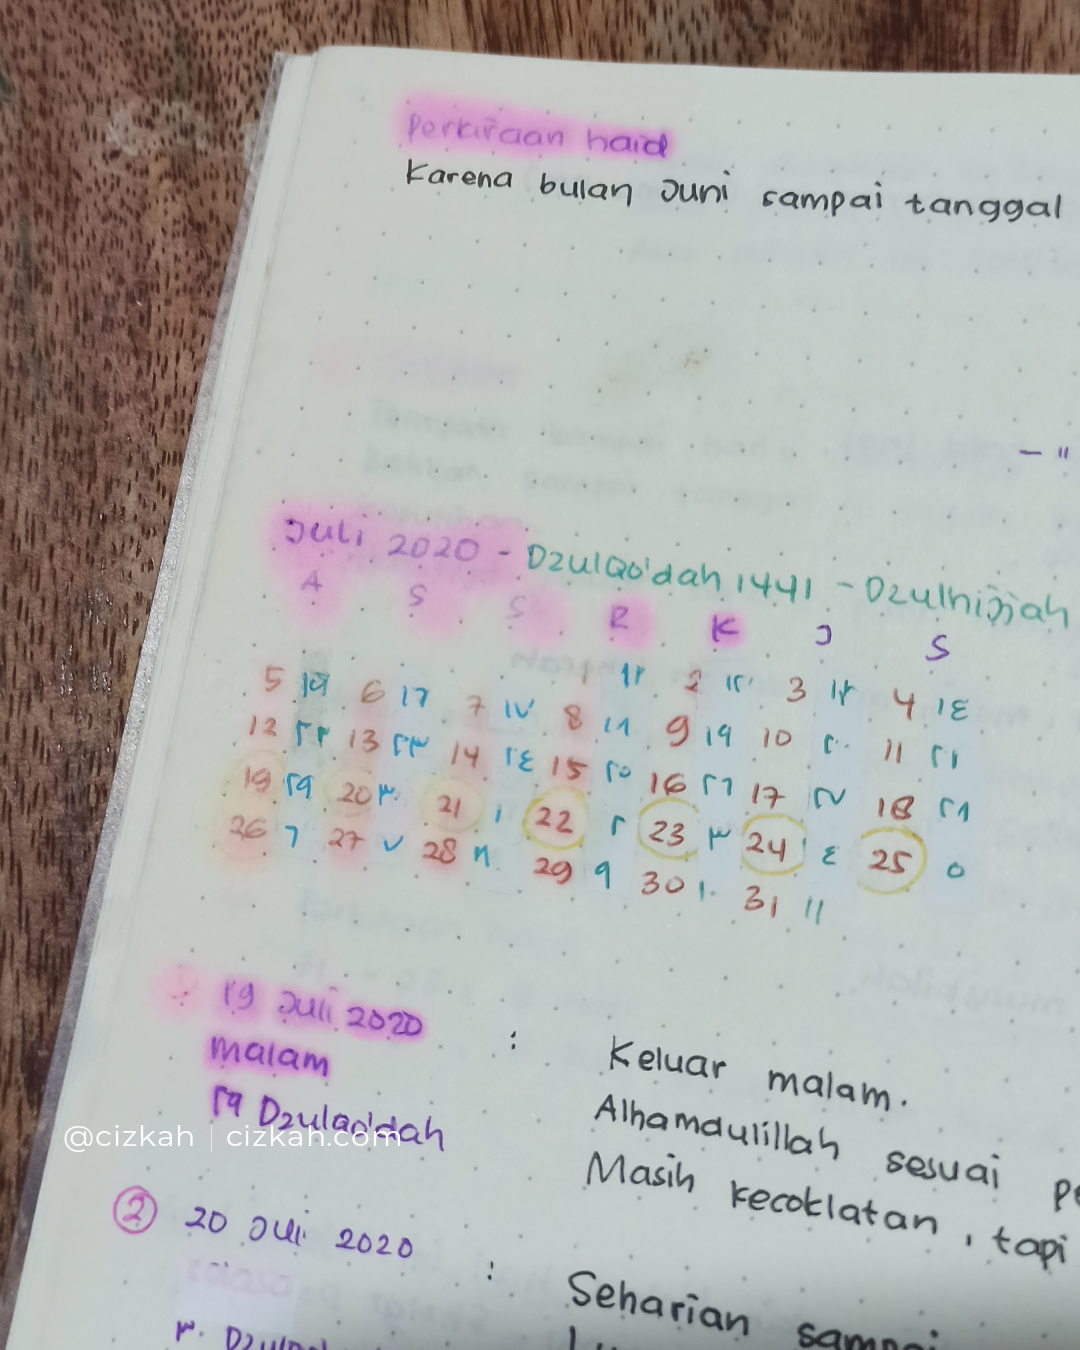 Perkiraan haid
Karena bulan Juni sampai tanggal
- "
Juli 2020 - DzulQo'dah ١٤٤١ - Dzulhijjah
A S S R K J S
1 ١٠ 2 ١١ 3 ١٢ 4 ١٣
5 ١٤ 6 ١٥ 7 ١٦ 8 ١٧ 9 ١٨ 10 ١٩ 11 ٢٠
12 ٢١ 13 ٢٢ 14 ٢٣ 15 ٢٤ 16 ٢٥ 17 ٢٦ 18 ٢٧
19 ٢٨ 20 ٢٩ 21 ٣٠ 22 ١ 23 ٢ 24 ٣ 25 ٤
26 ٥ 27 ٦ 28 ٧ 29 ٨ 30 ٩ 31 ١٠
19 Juli 2020 : Keluar malam.
malam Alhamdulillah sesuai
٢٩ Dzulqo'dah Masih kecoklatan, tapi
@cizkah | cizkah.com
2 20 Juli 2020 : Seharian
٣٠